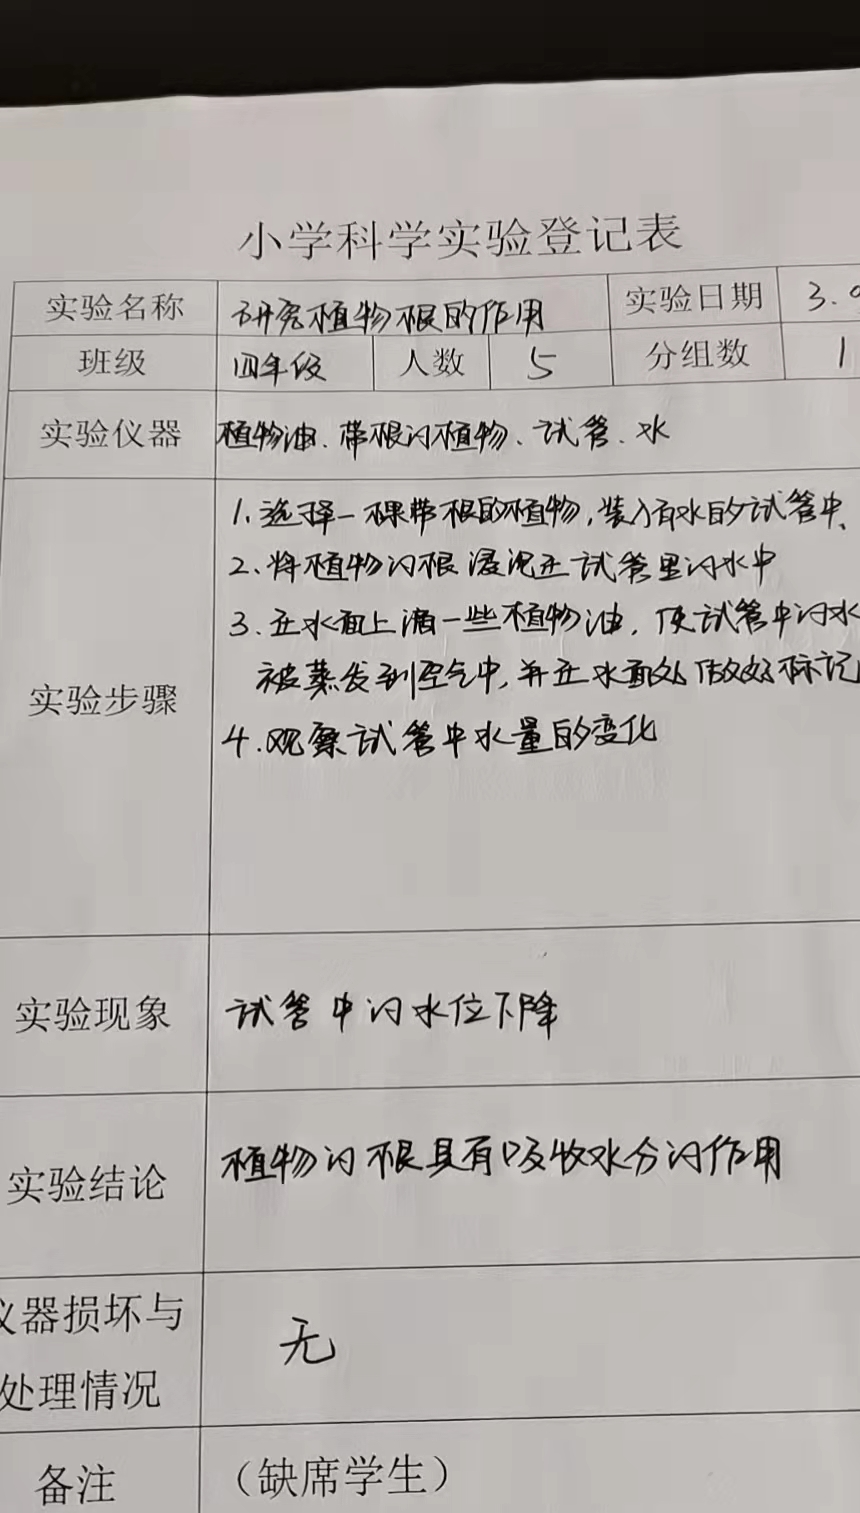 小学科学实验登记表
实验名称 研究植物根的作用 实验日期 3.
班级 四年级 人数 5 分组数 1
实验仪器 植物油、带根的植物、试管、水
1.选择一棵带根的植物,装入有水的试管中、
2、将植物的根浸泡在试管里的水中
3.在水面上滴一些植物油,使试管中的水
被蒸发到空气中,并在水面处做好标记
实验步骤
4.观察试管中水量的变化
实验现象 试管中的水位下降
实验结论 植物的根具有吸收水分的作用
仪器损坏与
无
处理情况
备注 （缺席学生）